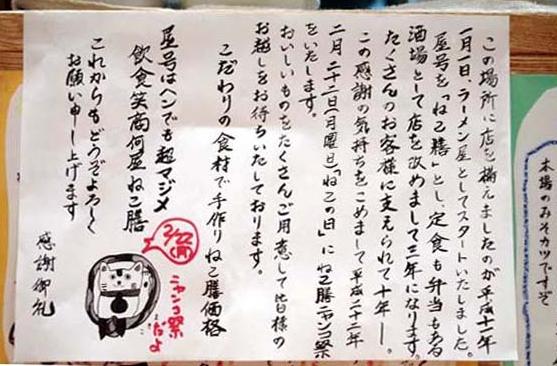 この場所に店を構えましたのが平成十一年
一月一日、ラーメン屋としてスタートいたしました。
屋号を「ねこ膳」とし、定食も弁当もある
酒場として店を改めまして三年になります。
たくさんのお客様に支えられて十年―。
この感謝の気持ちをこめまして平成二十二年
二月二十二日(月曜日)「ねこの日」にねこ膳ニャンコ祭
をいたします。
おいしいものをたくさんご用意して皆様の
お越しをお待ちいたしております。
こだわりの食材で手作りねこ膳価格
屋号はヘンでも超マジメ
飲食笑商何屋ねこ膳
これからもどうぞよろしく
お願い申し上げます
感謝御礼
2/22(月)
ニャンコ祭
だよ
本場のみそカツですぞ